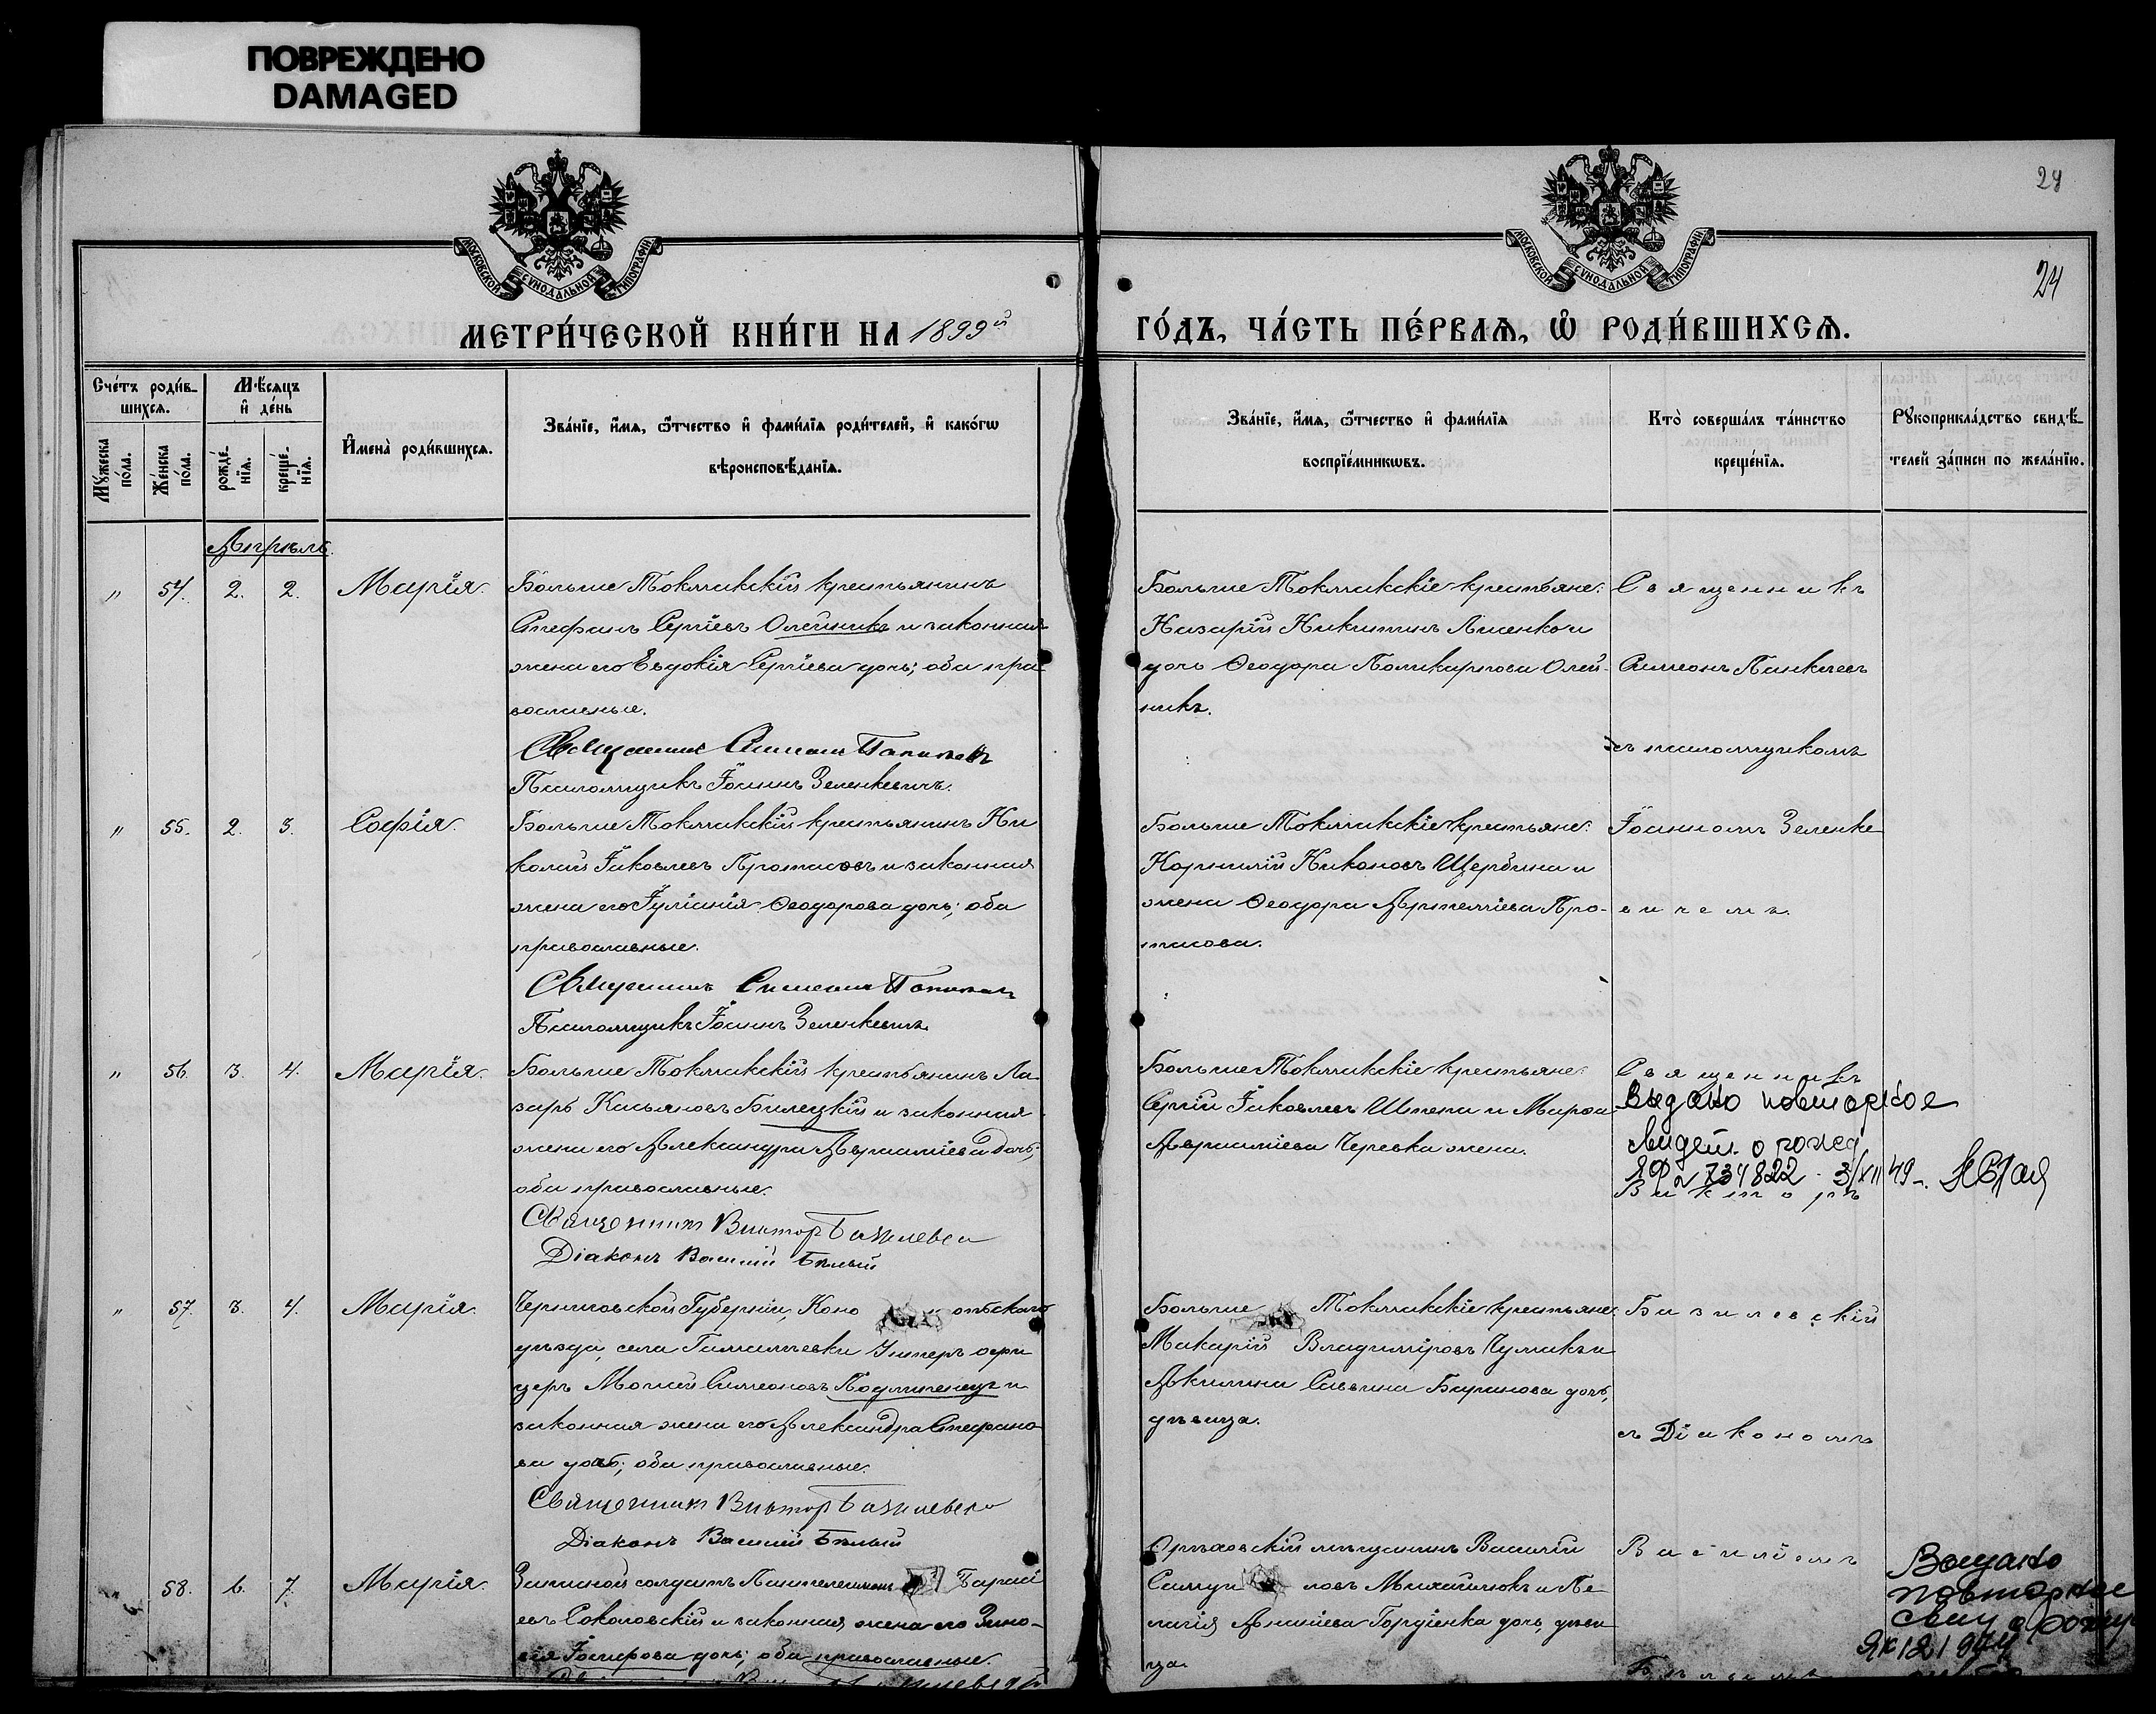 ПОВРЕЖДЕНО
DAMAGED
24
МОСКОВСКОЙ СѴНОДАЛЬНОЙ ТИПОГРАФІИ
МОСКОВСКОЙ СѴНОДАЛЬНОЙ ТИПОГРАФІИ
24
МЕТРИ́ЧЕСКОЙ КНИ́ГИ НА 1899й
ГО́ДЪ, ЧА́СТЬ ПЕ́РВАѦ, Ѡ РОДИ́ВШИХСѦ.
Сче́тъ роди́в-
шихсѧ.
Мꙋ́жеска
по́ла.
Же́нска
по́ла.
Мѣ́сѧцъ
и҆ де́нь
рожде́-
нїѧ.
креще́-
нїѧ.
И҆мена̀ роди́вшихсѧ.
Зва́нїе, и҆́мѧ, ѻ҆́тчество и҆ фами́лїѧ роди́телей, и҆ како́гѡ
вѣроисповѣ́данїѧ.
Зва́нїе, и҆́мѧ, ѻ҆́тчество и҆ фами́лїѧ
воспрїе́мникѡвъ.
Кто̀ соверша́лъ та́инство
креще́нїѧ.
Рꙋкоприкла́дство свидѣ́-
телей за́писи по жела́нїю.
Апрѣль.
" 54. 2. 2. Марія.
Больше Токмакскій крестьянинъ
Стефанъ Сергіевъ Олейникъ и законная
жена его Евдокія Сергіева дочь; оба пра
вославные.
Священникъ Симеонъ
Псаломщикъ Іоаннъ Зеленкевичъ.
Больше Токмакскіе крестьяне:
Назарій Никитинъ Лисенко и
дочь Ѳеодора Поликарпова Олей-
никъ.
Священникъ
Симеонъ
съ псаломщикомъ
" 55. 2. 3. Софія.
Больше Токмакскій крестьянинъ Ни
колай Іаковлевъ Протасовъ и законная
жена его Іуліанія Ѳеодорова дочь; оба
православные.
Священникъ Симеонъ
Псаломщикъ Іоаннъ Зеленкевичъ
Больше Токмакскіе крестьяне:
Корнилій Никоновъ Щербина и
жена Ѳеодора Артеміева Про-
тасова.
Іоанномъ Зеленке
вичемъ.
" 56. 3. 4. Марія.
Больше Токмакскій крестьянинъ Ла
зарь Касьяновъ Билецкій и законная
жена его Александра дочь;
оба православные.
Священникъ Викторъ Базилевск
Діаконъ Василій Бѣлый
Больше Токмакскіе крестьяне:
Сергій Іаковлевъ Штепа и
Черевка жена.
Священникъ
Выдано повторное
свидет. о рожд
ЯФ № 734822 3/XII 49
Викторъ
" 57. 3. 4. Марія.
Черниговской Губерніи, Коно опскаго
уѣзда, села Унтеръ офи
церъ Симеоновъ и
законная жена его Александра Стефано
ва дочь; оба православные.
Священникъ Викторъ Базилевск
Діаконъ Василій Бѣлый
Больше Токмакскіе крестьяне:
Макарій Владиміровъ Чумакъ и
Акилина Саввина Баранова дочь,
дѣвица.
Базилевскій
съ Діакономъ
58. 6. 7. Марія.
Запасной солдатъ
евъ Соколовскій и законная жена его Зино-
вія Іосифова дочь; оба православные.
Орѣховскій мѣщанинъ Василій
Саму ловъ Михайлюкъ и Пе
лагія Ананіева Гордіенка дочь, дѣви
ца.
Василіемъ
Бѣлымъ
Выдано
повторное
свид о рожд